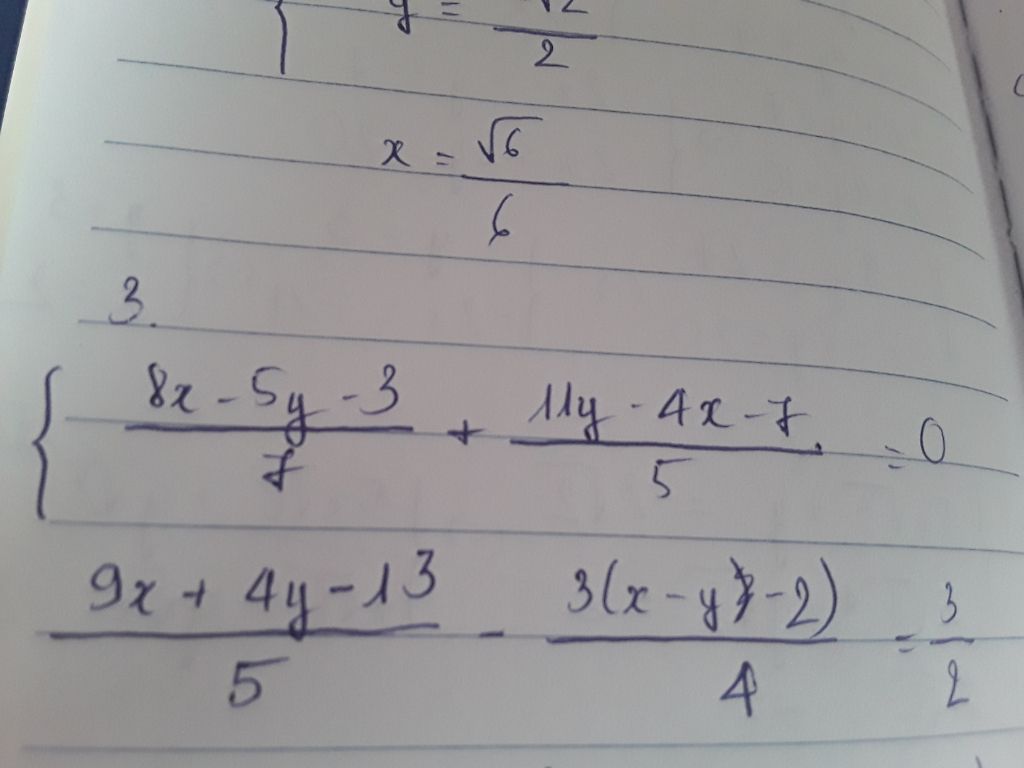 y = √2/2
x = √6/6
3.
{ (8x - 5y - 3)/7 + (11y - 4x - 7)/5 = 0
(9x + 4y - 13)/5 - 3(x - y - 2)/4 = 3/2